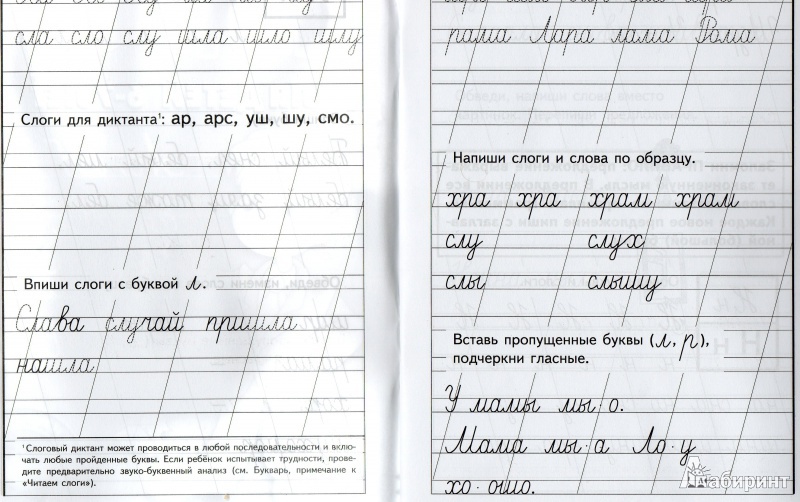 сла сло слу шла шло шлу
Слоги для диктанта¹: ар, арс, уш, шу, смо.
Впиши слоги с буквой л.
Слава случай пришла
нашла
¹Слоговый диктант может проводиться в любой последовательности и вклю-
чать любые пройденные буквы. Если ребёнок испытывает трудности, прове-
дите предварительно звуко-буквенный анализ (см. Букварь, примечание к
«Читаем слоги»).
рама Лара лама Рома
Напиши слоги и слова по образцу.
хра хра храм храм
слу слух
слы слышу
Вставь пропущенные буквы (л, р),
подчеркни гласные.
У мамы мы·о.
Мама мы·а Ло·у
хо·ошо.
Лабиринт